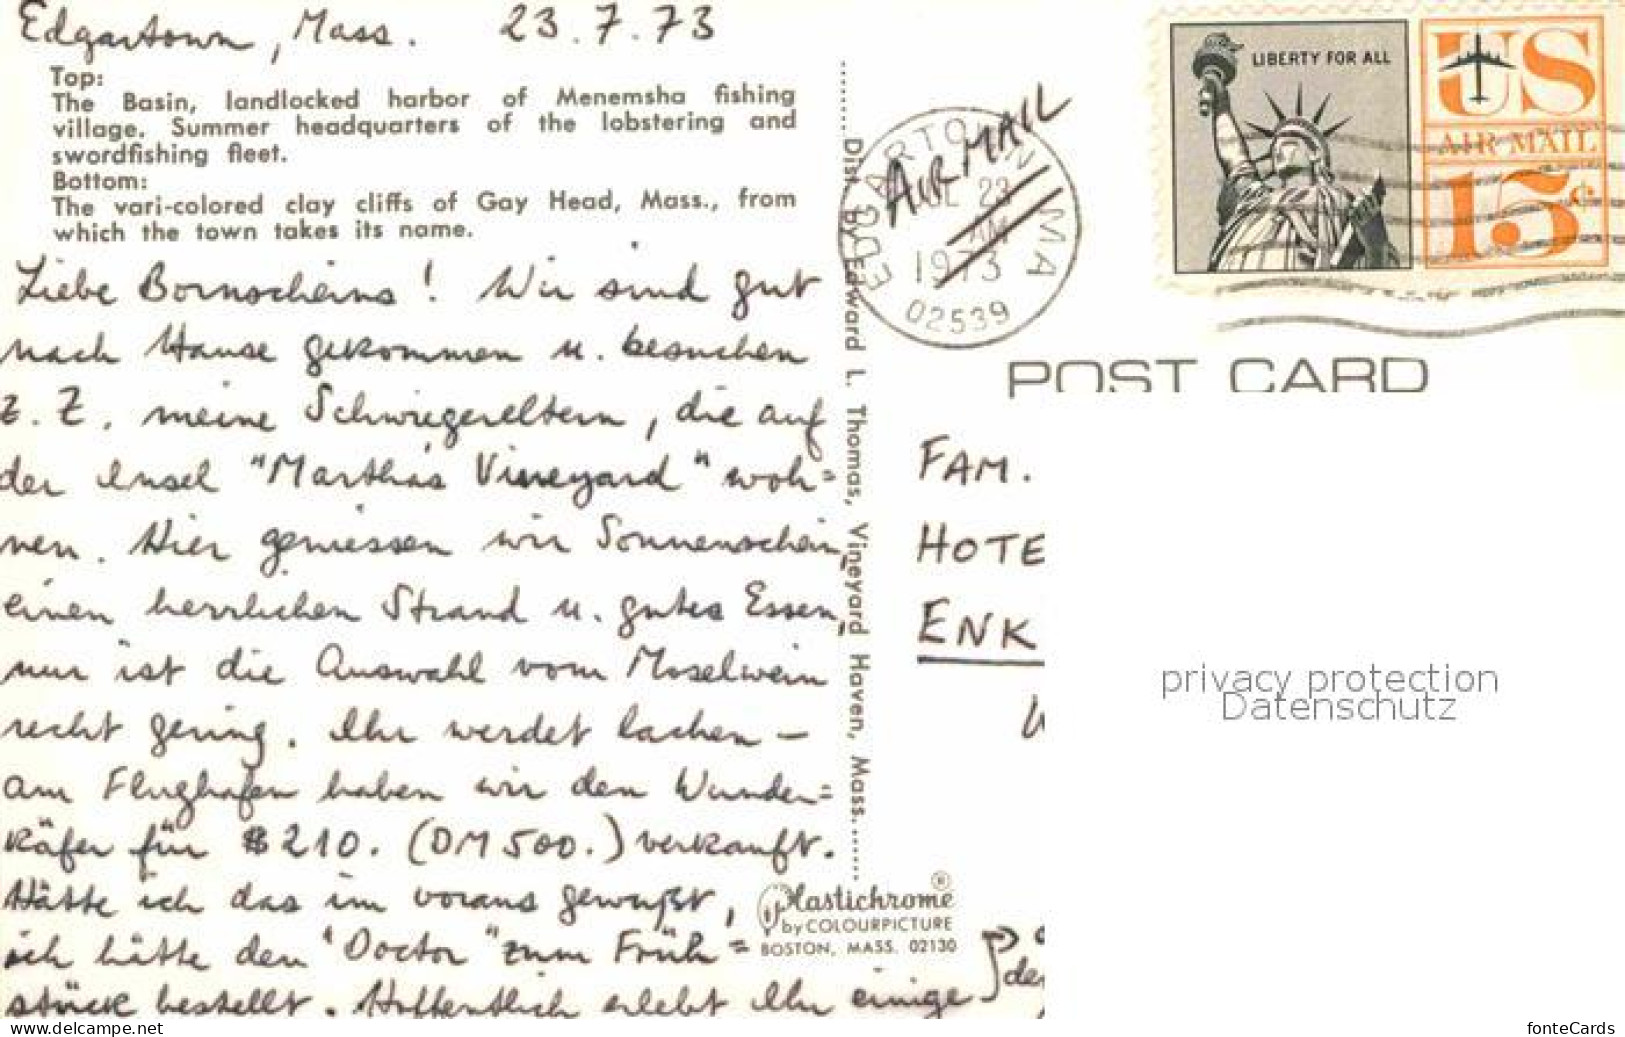 Edgartown, Mass. 23.7.73
Top:
The Basin, landlocked harbor of Menemsha fishing
village. Summer headquarters of the lobstering and
swordfishing fleet.
Bottom:
The vari-colored clay cliffs of Gay Head, Mass., from
which the town takes its name.
Liebe Bornscheins! Wir sind gut
nach Hause gekommen u. besuchen
z. Z. meine Schwiegereltern, die auf
der Insel "Martha's Vineyard" woh=
nen. Hier geniessen wir Sonnenschein,
einen herrlichen Strand u. gutes Essen,
nur ist die Auswahl vom Moselwein
recht gering. Ihr werdet lachen –
am Flughafen haben wir den Wunder=
käfer für $210. (DM 500.) verkauft.
Hätte ich das im voraus gewußt,
ich hätte den "Doctor" zum Früh=
stück bestellt. Hoffentlich erlebt Ihr einige
de
Dist. by Edward L. Thomas, Vineyard Haven, Mass.
Plastichrome ®
by COLOURPICTURE
BOSTON, MASS. 02130
AIR MAIL
EDGARTOWN MA
JUL 23
AM
1973
02539
LIBERTY FOR ALL
US
AIR MAIL
15¢
POST CARD
FAM.
HOTE
ENK
privacy protection
Datenschutz
www.delcampe.net
fonteCards